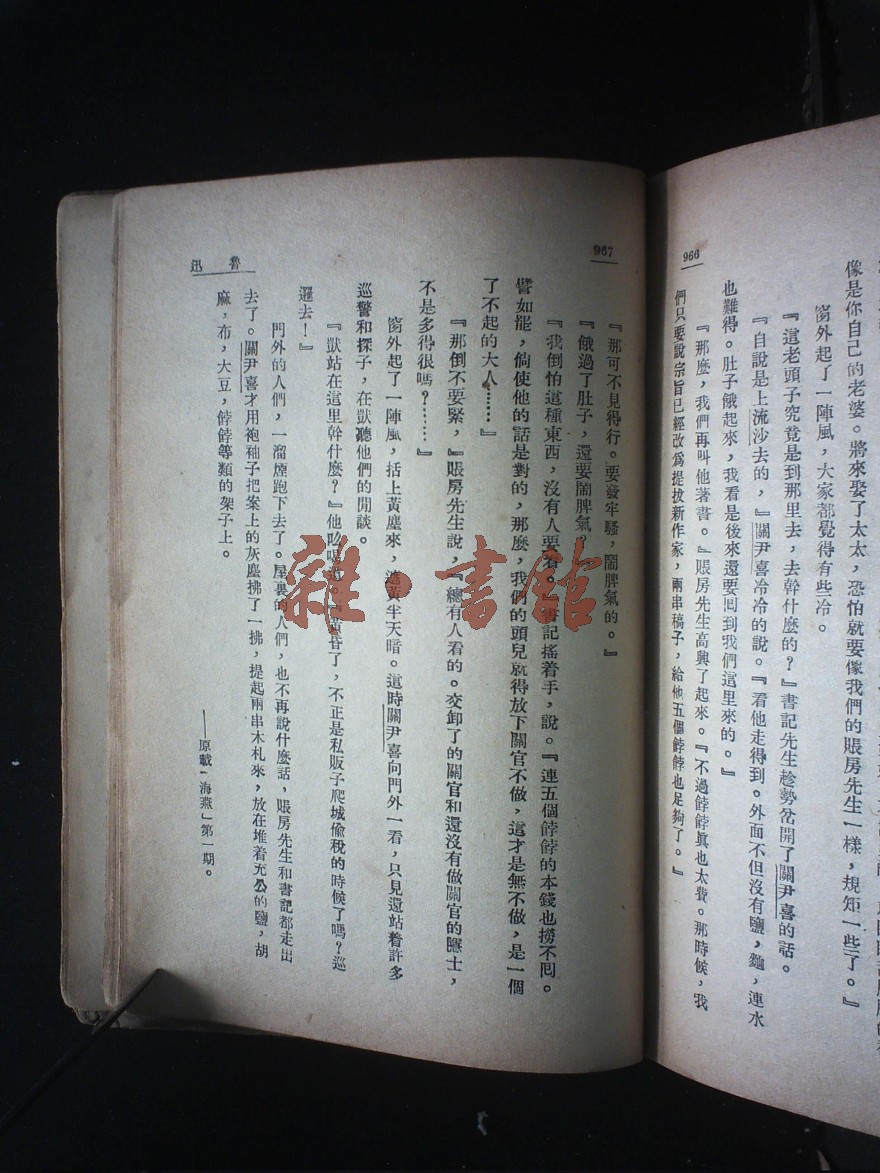 966
像是你自己的老婆。將來娶了太太，恐怕就要像我們的賬房先生一樣，規矩一些了。』
窗外起了一陣風，大家都覺得有些冷。
『這老頭子究竟是到那里去，去幹什麼的？』書記先生趁勢岔開了關尹喜的話。
『自說是上流沙去的，』關尹喜冷冷的說。『看他走得到。外面不但沒有鹽，麵，連水
也難得。肚子餓起來，我看是後來還要囘到我們這里來的。』
『那麼，我們再叫他著書。』賬房先生高興了起來。『不過餑餑眞也太費。那時候，我
們只要說宗旨已經改爲提拔新作家，兩串稿子，給他五個餑餑也足夠了。』
967
『那可不見得行。要發牢騷，鬧脾氣的。』
『餓過了肚子，還要鬧脾氣？』
『我倒怕這種東西，沒有人要看。』書記搖着手，說。『連五個餑餑的本錢也撈不囘。
譬如罷，倘使他的話是對的，那麼，我們的頭兒就得放下關官不做，這才是無不做，是一個
了不起的大人……』
『那倒不要緊，』賬房先生說，『總有人看的。交卸了的關官和還沒有做關官的隱士，
不是多得很嗎？……』
窗外起了一陣風，括上黃塵來，遮黃半天暗。這時關尹喜向門外一看，只見還站着許多
巡警和探子，在獃聽他們的閒談。
『獃站在這里幹什麼？』他吆喝道。『黃昏了，不正是私販子爬城偷稅的時候了嗎？巡
邏去！』
門外的人們，一溜煙跑下去了。屋裏的人們，也不再說什麼話，賬房先生和書記都走出
去了。關尹喜才用袍袖子把案上的灰塵拂了一拂，提起兩串木札來，放在堆着充公的鹽，胡
麻，布，大豆，餑餑等類的架子上。
——原載「海燕」第一期。
魯迅
雜·書館